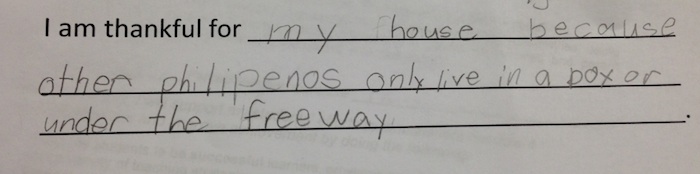 I am thankful for my house because
other philipenos only live in a box or
under the freeway.